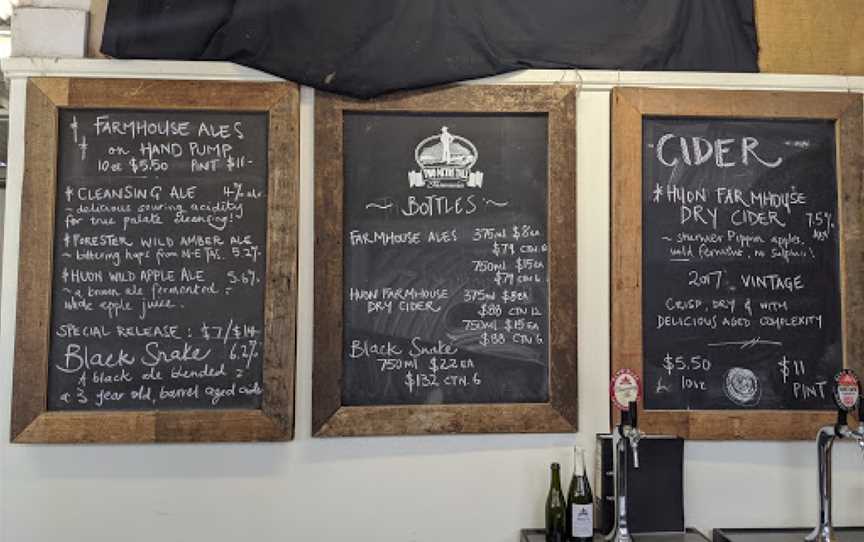 FARMHOUSE ALES
on HAND PUMP
10oz $5.50 PINT $11-
* CLEANSING ALE 4% alc.
~ delicious souring acidity
for true palate cleansing!~
* FORESTER WILD AMBER ALE
~ bittering hops from N-E TAS. 5.2%
* HUON WILD APPLE ALE 5.6%
~ a brown ale fermented
whole apple juice.
SPECIAL RELEASE : $7/$14
Black Snake 6.2%
A black ale blended
a 3 year old, barrel aged cider
TWO METRE TALL
Tasmania
~ BOTTLES ~
FARMHOUSE ALES 375ml $8EA
CTN.
750ml $15EA
$79 CTN 6
HUON FARMHOUSE 375ml $8EA
DRY CIDER $88 CTN 12
750ml $15 EA
$88 CTN 6
Black Snake
750ml $22EA
$132 CTN. 6
CIDER
* HUON FARMHOUSE
DRY CIDER 7.5%
~ sturmer Pippin apples.
wild ferment, no Sulphur!
2017 VINTAGE
CRISP, DRY & WITH
DELICIOUS AGED COMPLEXITY
$5.50 $11
10oz PINT